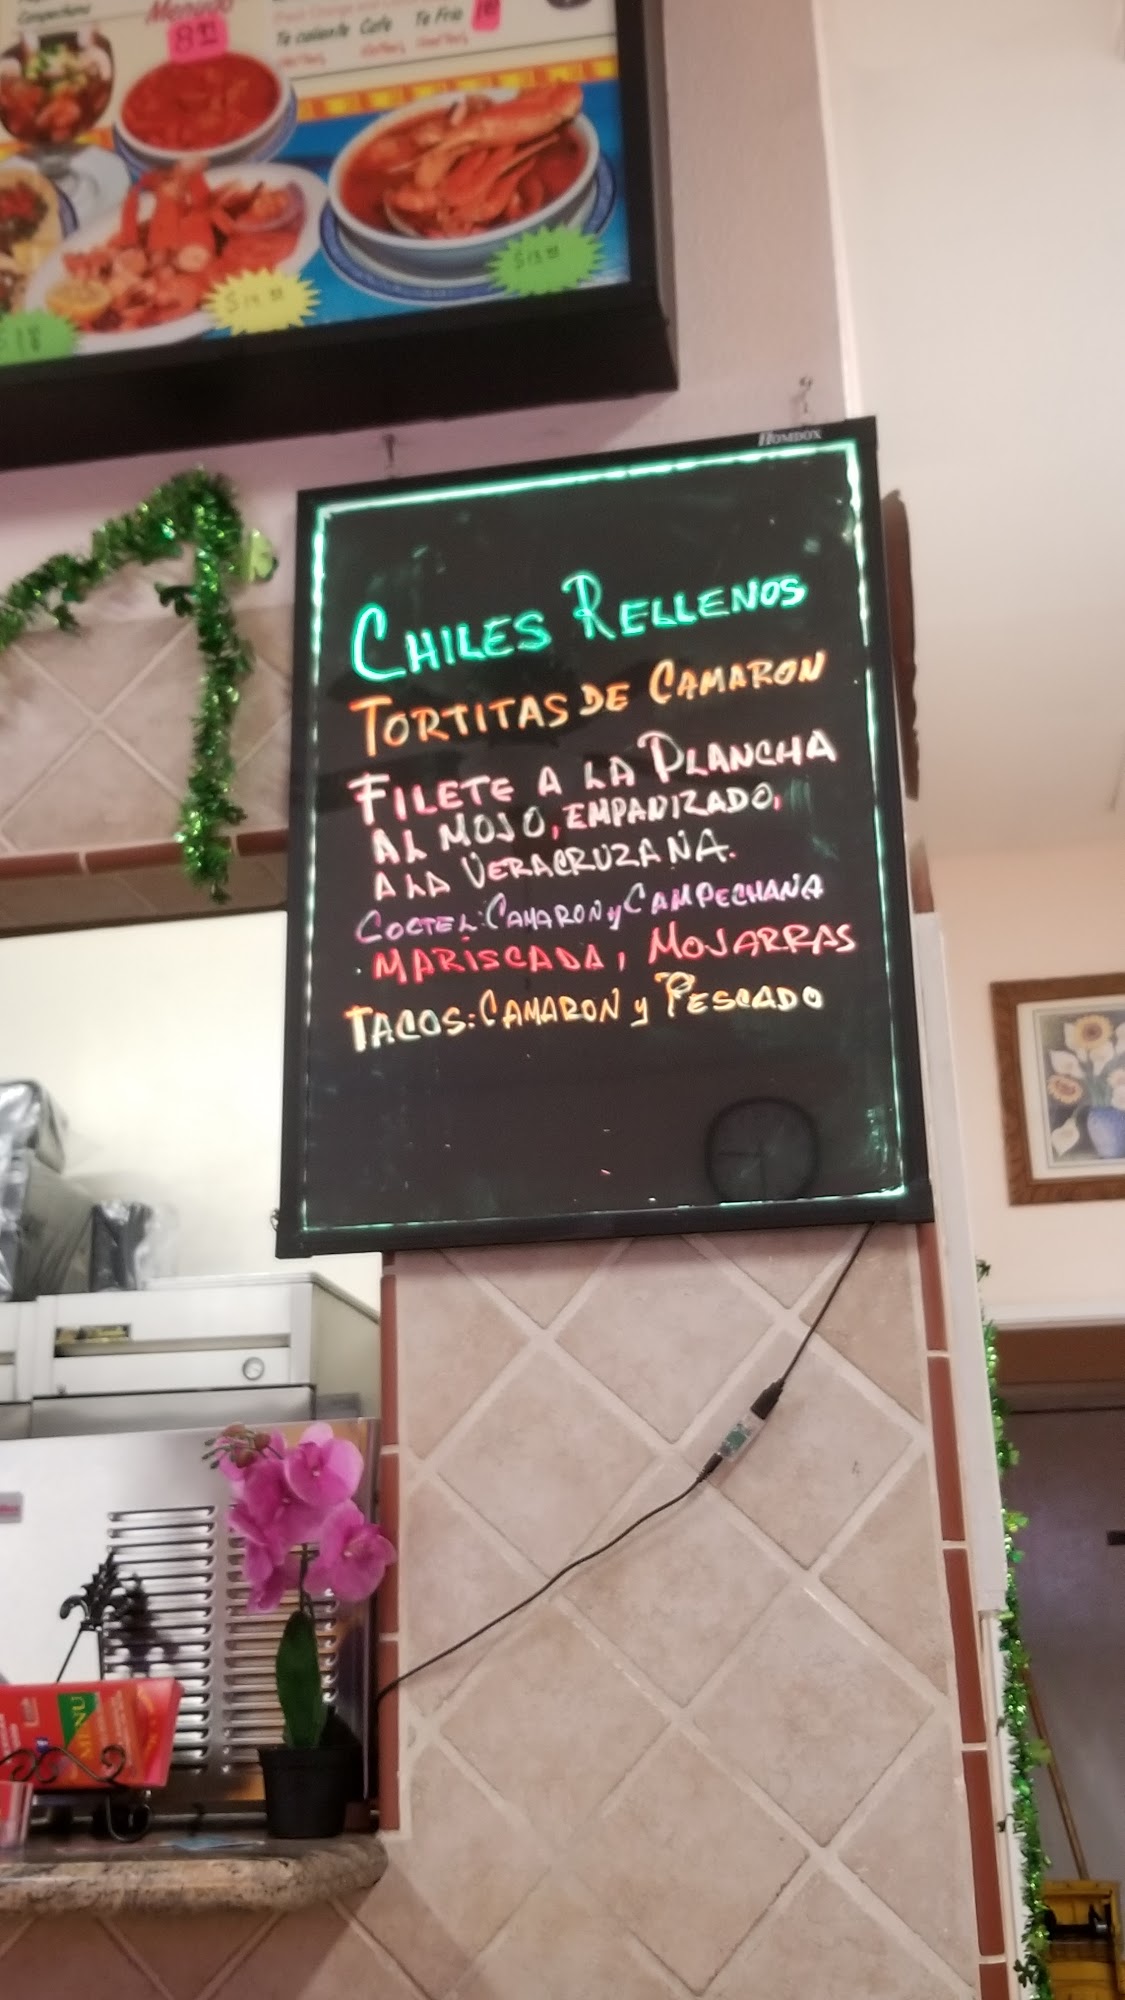 Campechana
Menudo
8.⁹⁹
Te caliente Cafe Te Frio
$18
HOMDOX
CHILES RELLENOS
TORTITAS DE CAMARON
FILETE A LA PLANCHA
AL MOJO, EMPANIZADO,
A LA VERACRUZANA.
COCTEL: CAMARON y CAMPECHANA
. MARISCADA, MOJARRAS
TACOS: CAMARON y PESCADO
MENU